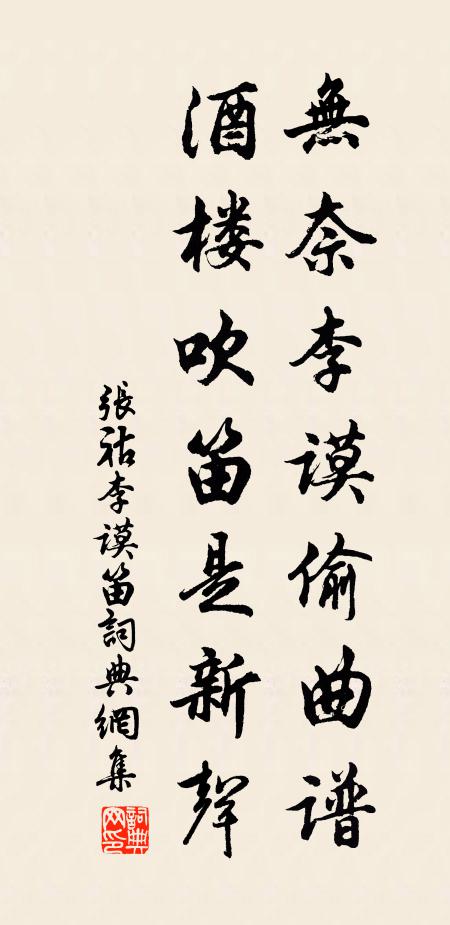 無奈李謨偷曲谱
酒楼吹笛是新聲
張祜李謨笛詞典網集
詞典网印